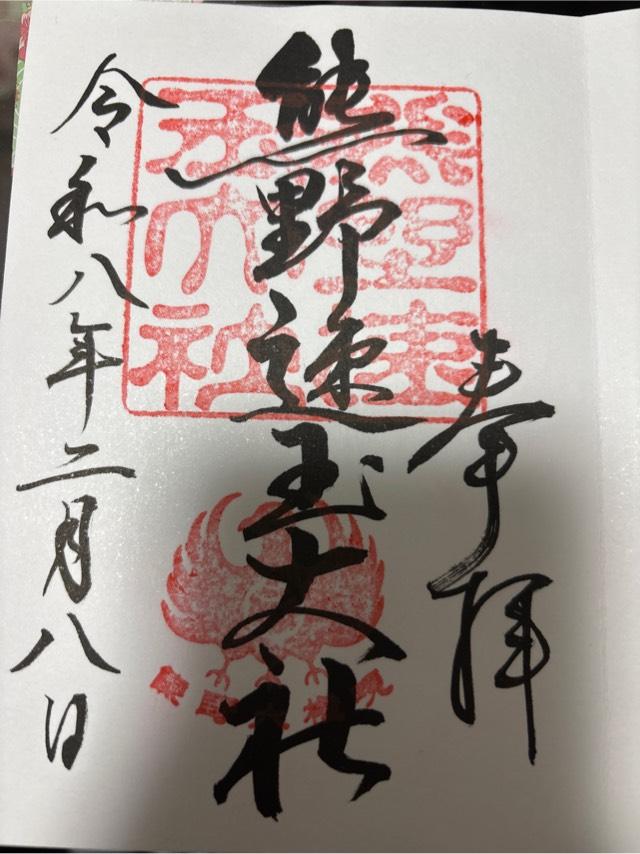 奉拝
熊野速玉大社
熊野速玉大社
令和八年二月八日